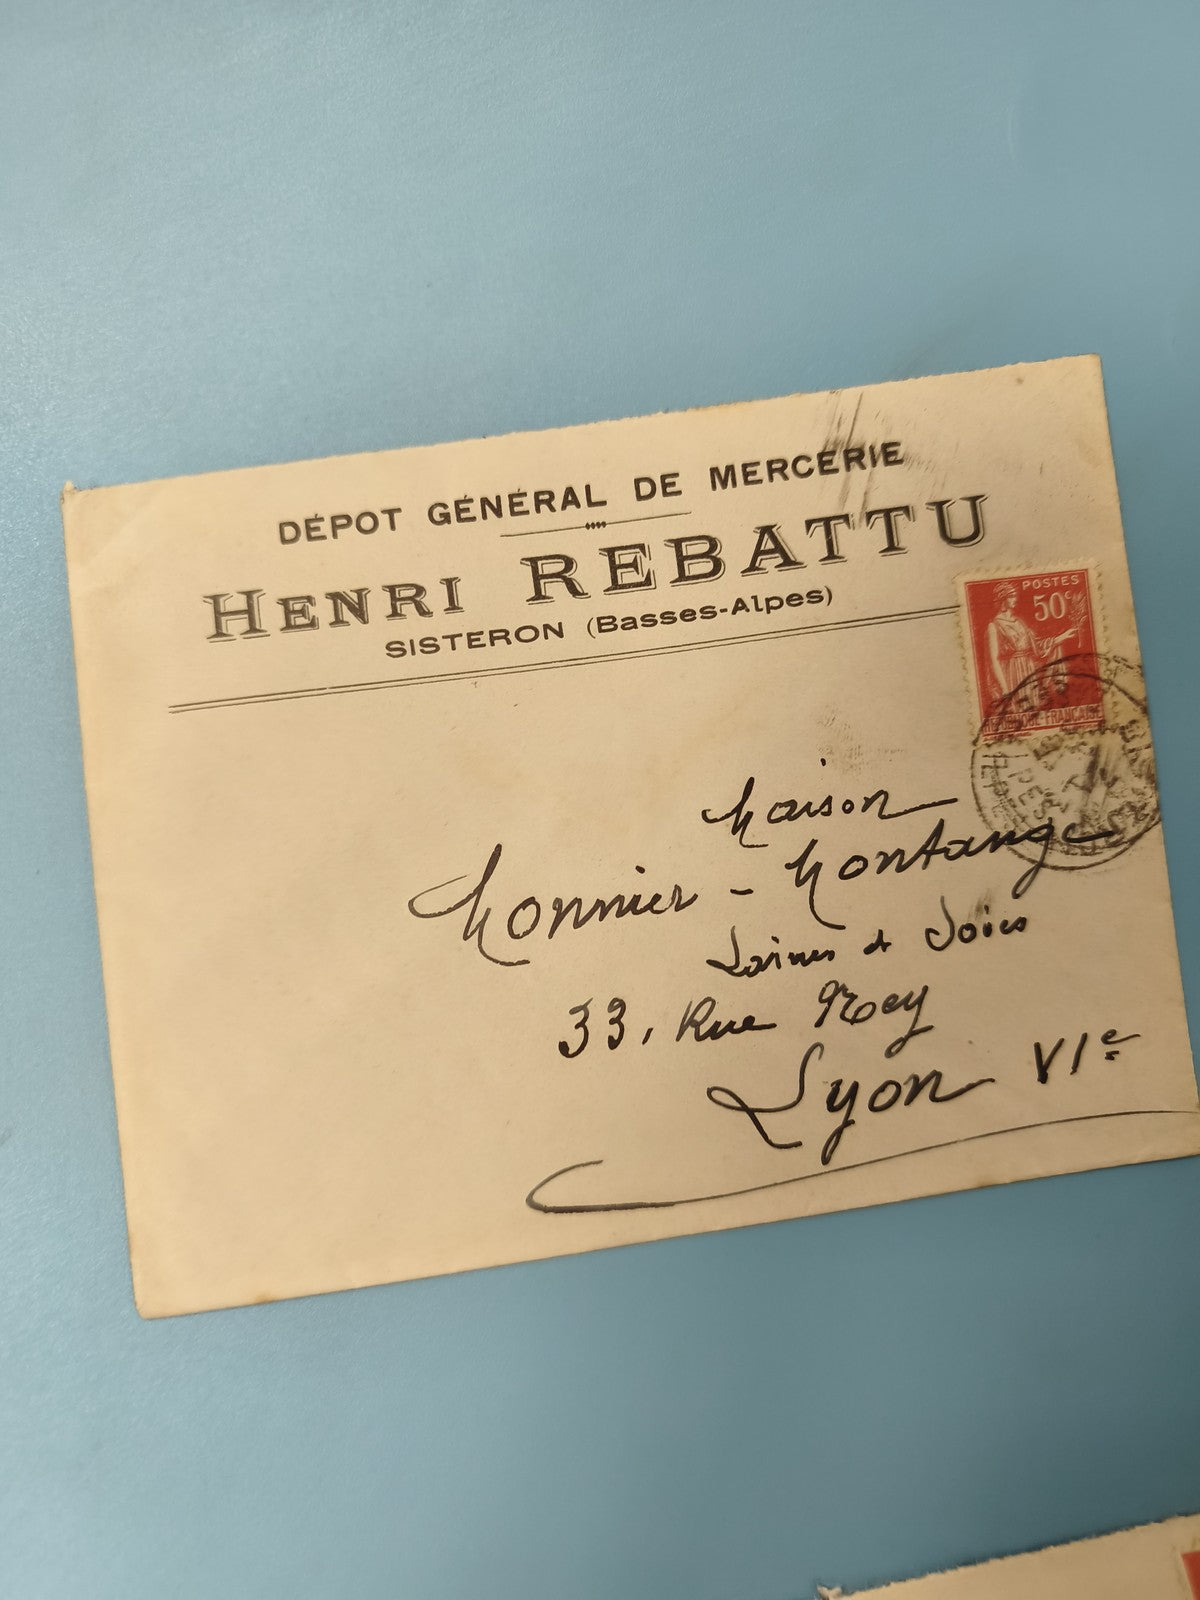 DÉPOT GÉNÉRAL DE MERCERIE
HENRI REBATTU
SISTERON (Basses-Alpes)
POSTES
50c
REPUBLIQUE FRANÇAISE
Maison
Monnier - Montange
Laines & Soies
33, Rue Ney
Lyon VIe